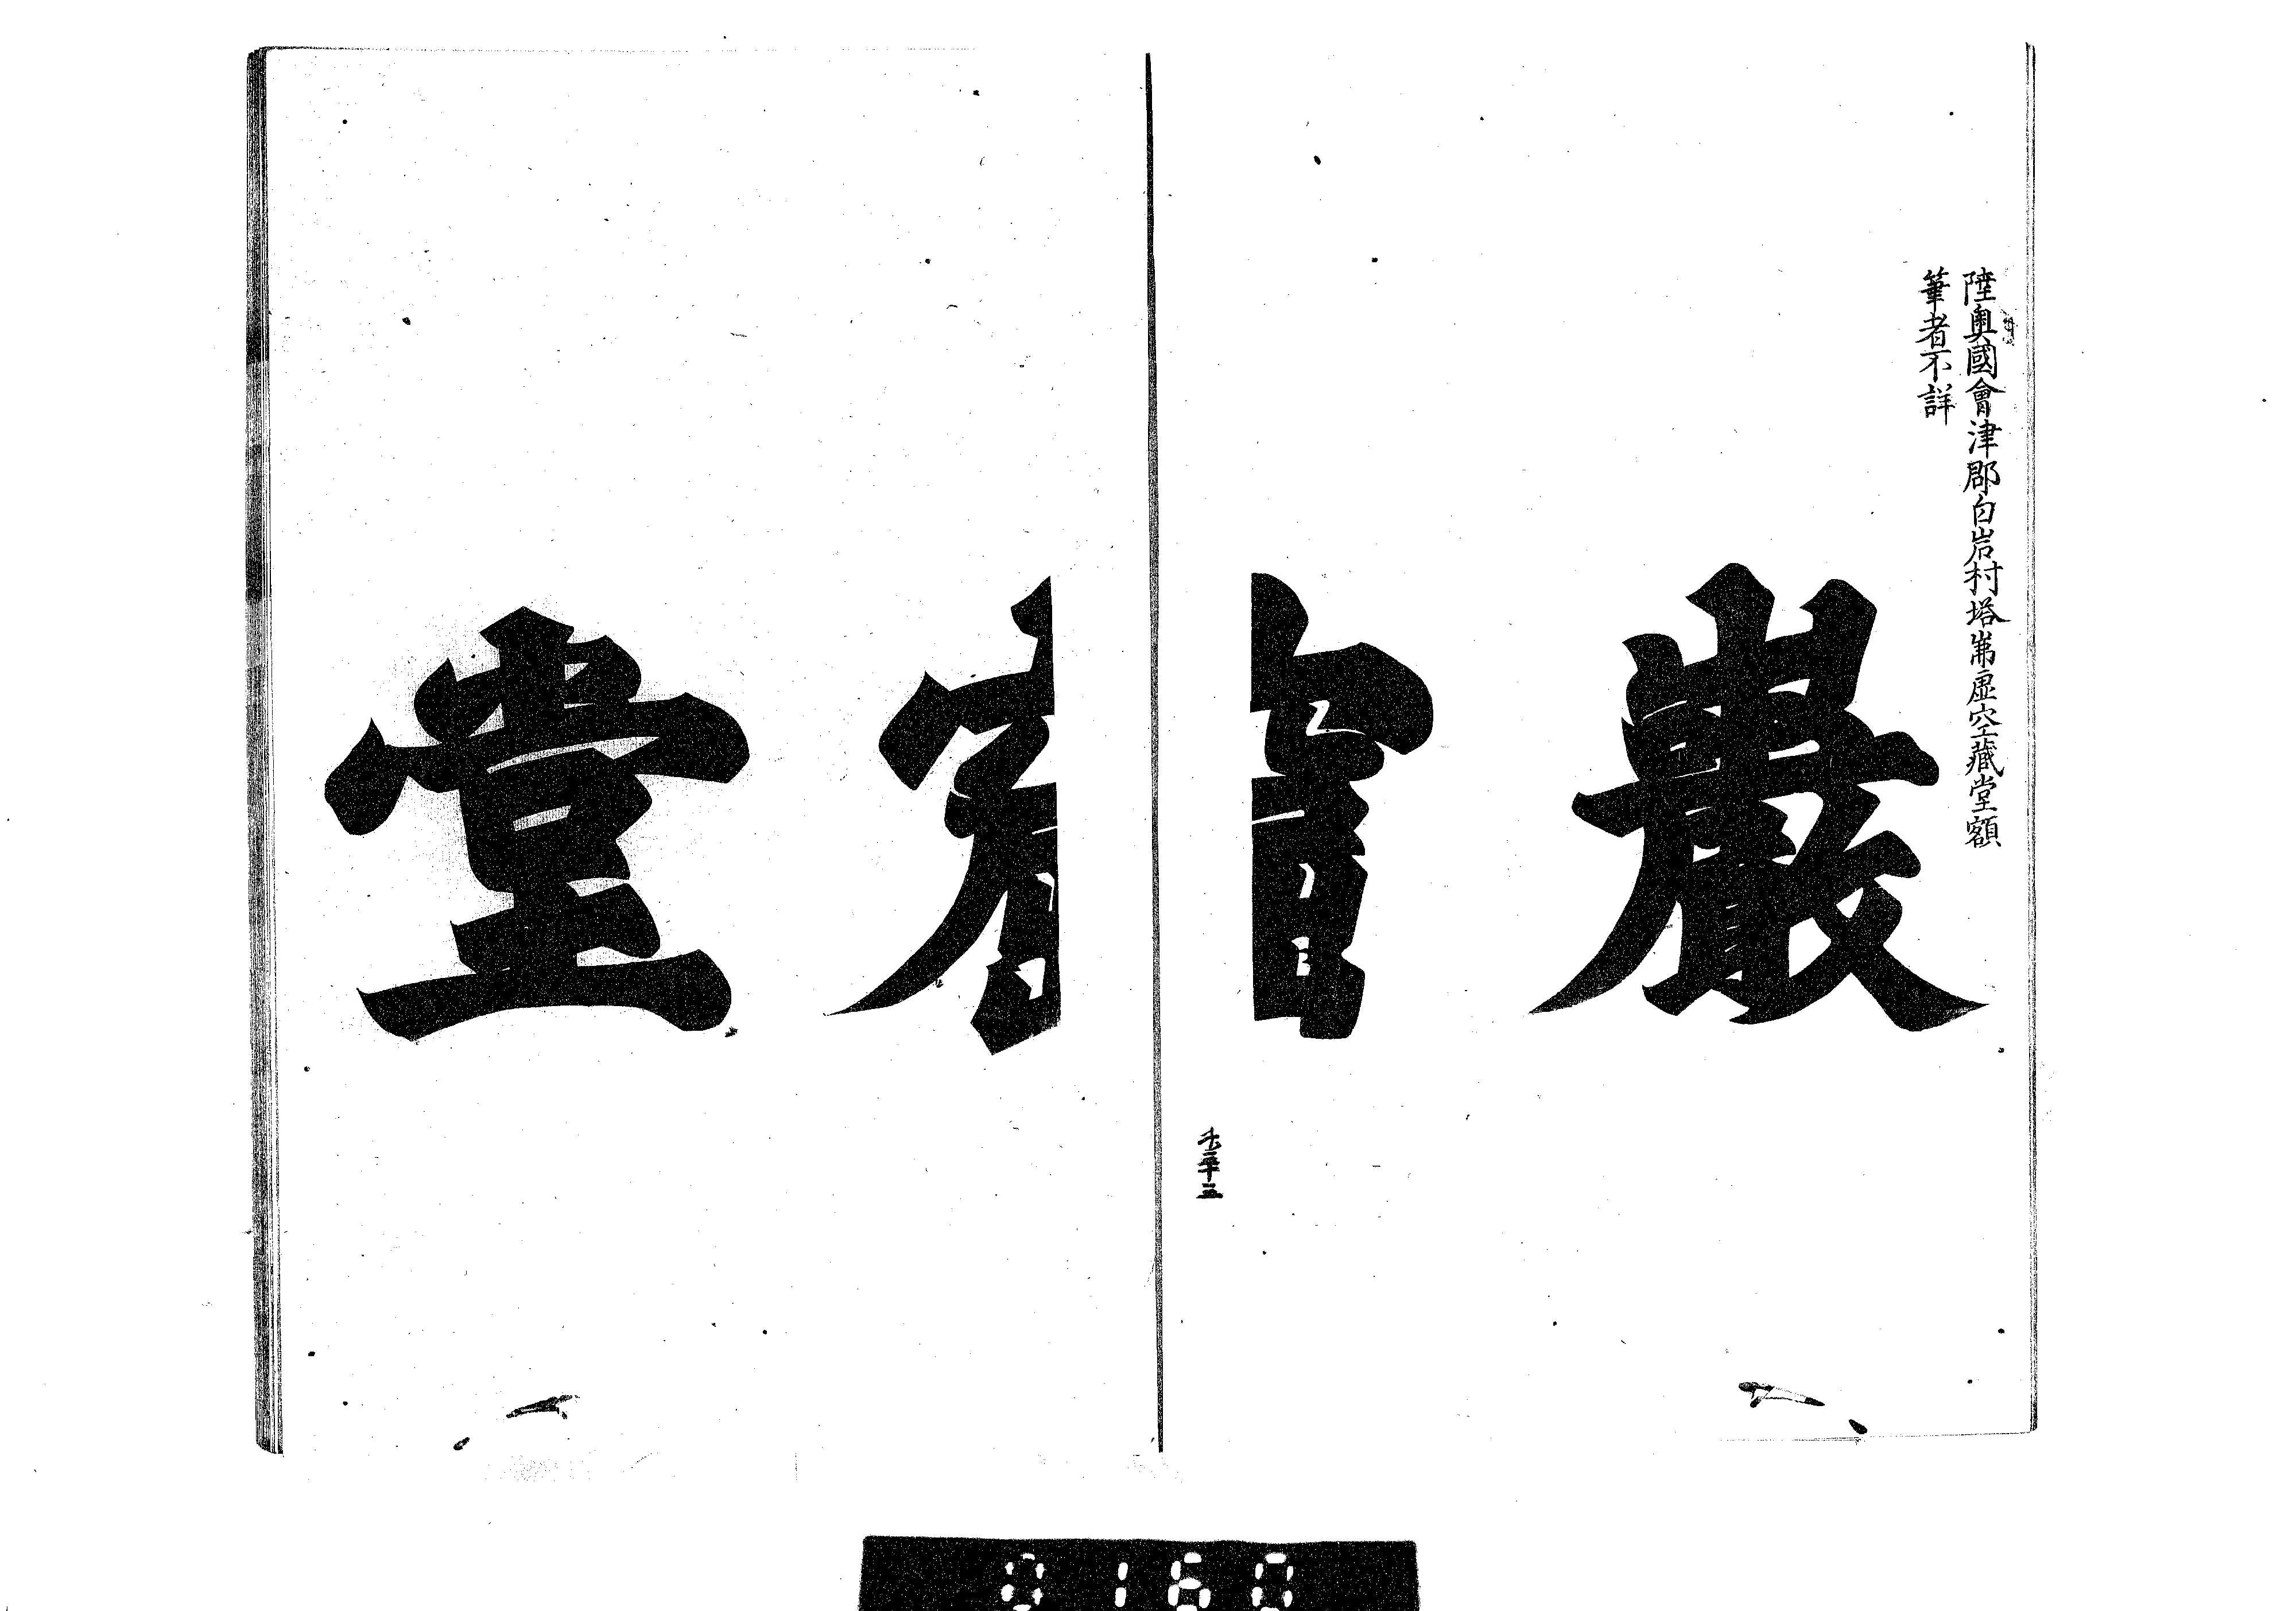 陸奥國會津郡白岩村塔岪虚空藏堂額
筆者不詳
巖
堂
0160